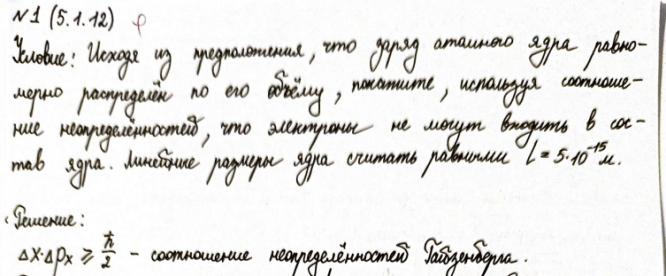 N1 (5.1.12) φ
Условие: Исходя из предположения, что заряд атомного ядра равно-
мерно распределён по его объёму, покажите, используя соотноше-
ние неопределённостей, что электроны не могут входить в сос-
тав ядра. Линейные размеры ядра считать равными l = 5·10⁻¹⁵ м.
Решение:
Δx·Δpx ⩾ ħ/2 - соотношение неопределённостей Гайзенберга.